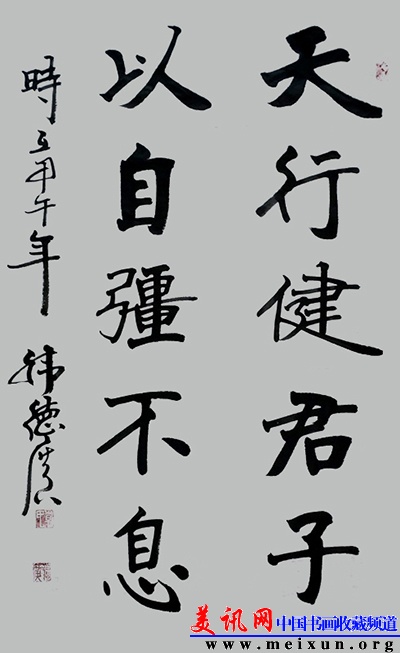 天行健君子
以自彊不息
時在甲午年 韩德
美讯网
中国书画收藏频道
www.meixun.org